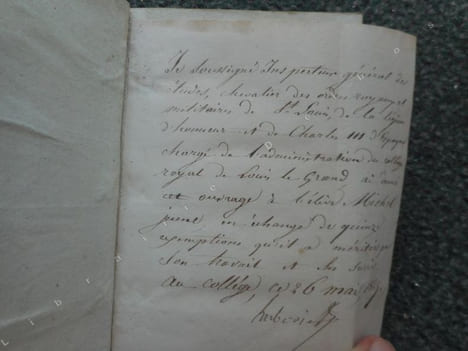 Je soussigné Inspecteur général des
études, chevalier des ordres royaux et
militaires de St Louis, de la légion
d'honneur et de Charles III d'Espagne
chargé de l'administration du collège
royal de Louis le Grand ai
cet ouvrage à l'élève Michel
en échange de quinze
exemptions qu'il a méritées par
son travail et ses soins
au collège, ce 26 mai